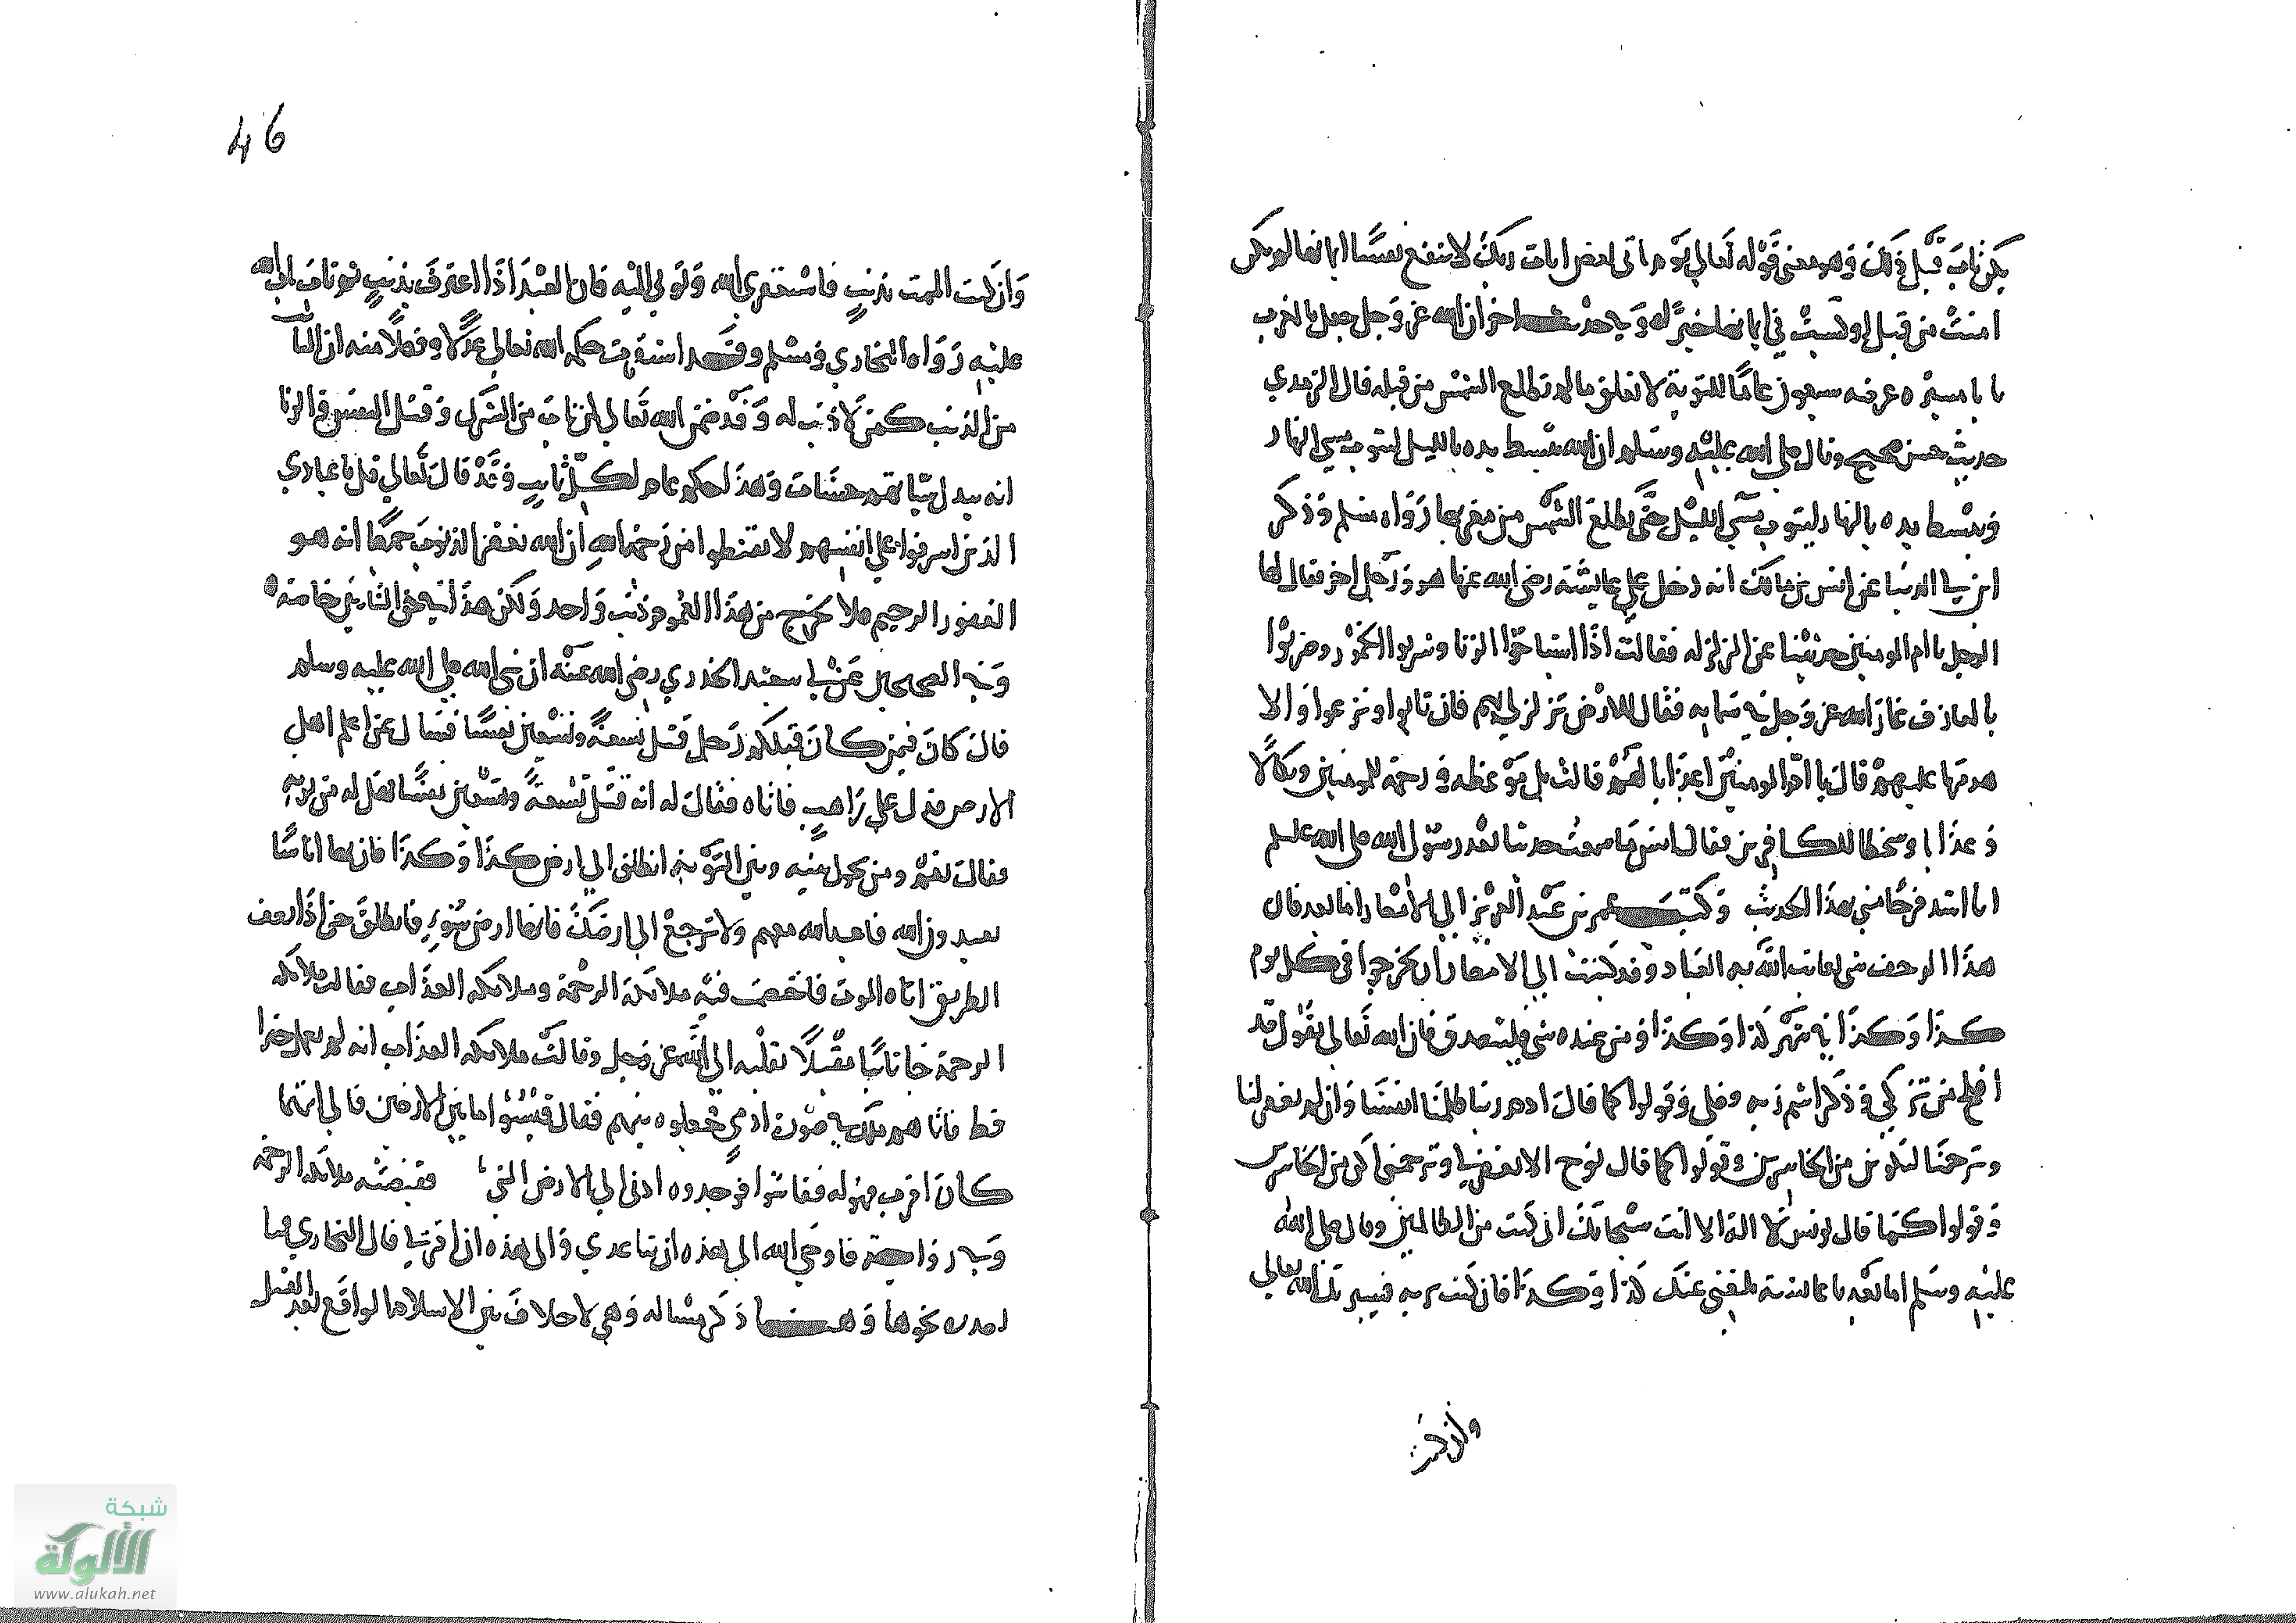 يكن تاب قبل ذلك وهو معنى قوله تعالي يوم ياتي بعض ايات ربك لا ينفع نفسا ايمانها لم تكن
امنت من قبل او كسبت في ايمانها خيرا وفي حديث اخر ان الله عز وجل جعل بالمغرب
بابا مسيرة عرضه سبعون عاما للتوبة لا يغلق مالم تطلع الشمس من قبله قال الترمدي
حديث حسن صحيح وقال صلى الله عليه وسلم ان الله يبسط يده بالليل ليتوب مسي النهار
ويبسط يده بالنهار ليتوب مسي الليل حتى تطلع الشمس من مغربها رواه مسلم وذكر
ابن ابي الدنيا عن انس بن مالك انه دخل علي عايشة رضي الله عنها هو ورجل اخر فقال لها
الرجل يا ام المومنين حدثينا عن الزلزله فقالت اذا استباحوا الزنا وشربوا الخمور وضربوا
بالمعازف غار الله عز وجل في سمايه فقال للارض تزلزلي بهم فان تابوا ونزعوا والا
هدمها عليهم قال يا ام المومنين اعذابا لهم قالت بل موعظه ورحمة للمومنين ونكالا
وعذابا وسخطا للكافرين فقال انس ما سمعت حديثا بعد رسول الله صلى الله عليه وسلم
انا اشد فرحا مني بهذا الحديث وكتب عمر بن عبد العزيز الي الامصار اما بعد فان
هذا الرجف شي يعاتب الله به العباد وقد كتبت الي الامصار ان يخرجوا في كل يوم
كذا وكذا في شهر كذا وكذا ومن عنده شي فليتصدق فان الله تعالي يقول قد
افلح من تزكي وذكر اسم ربه وصلى وقولوا كما قال ادم ربنا ظلمنا انفسنا وان لم تغفر لنا
وترحمنا لنكونن من الخاسرين وقولوا كما قال نوح الا تغفر لي وترحمني اكن من الخاسرين
وقولوا كما قال يونس لا اله الا انت سبحانك اني كنت من الظالمين وقال صلى الله
عليه وسلم اما بعد يا عائشة بلغني عنك كذا وكذا فان كنت بريه فسيبريك الله تعالي
وان كنت
46
وان كنت الممت بذنب فاستغفري الله وتوبي اليه فان العبد اذا اعترف بذنب ثم تاب تاب الله
عليه رواه البخاري ومسلم وقد استقرت حكمة الله تعالي عدلا وفضلا منه ان التايب
من الذنب كمن لا ذنب له وقد ضمن الله تعالي لمن تاب من الشرك وقتل النفس والزنا
انه يبدل سياتهم حسنات وهذا حكم عام لكل تايب وقد قال تعالي قل يا عبادي
الذين اسرفوا علي انفسهم لا تقنطوا من رحمة الله ان الله يغفر الذنوب جميعا انه هو
الغفور الرحيم فلا يخرج من هذا العموم ذنب واحد ولكن هذا في حق التايبين خاصة
وفي الصحيحين عن ابي سعيد الخدري رضي الله عنه ان نبي الله صلي الله عليه وسلم
قال كان فيمن كان قبلكم رجل قتل تسعة وتسعين نفسا فسال عن اعلم اهل
الارض فدل علي راهب فاتاه فقال له انه قتل تسعة وتسعين نفسا فهل له من توبة
فقال نعم ومن يحول بينه وبين التوبة انطلق الي ارض كذا وكذا فان بها اناسا
يعبدون الله فاعبد الله معهم ولا ترجع الي ارضك فانها ارض سوء فانطلق حتى اذا نصف
الطريق اتاه الموت فاختصمت فيه ملائكة الرحمة وملائكه العذاب فقالت ملائكه
الرحمة جا تائبا مقبلا بقلبه الي الله عز وجل وقالت ملائكه العذاب انه لم يعمل خيرا
قط فاتاهم ملك في صورة ادمي فجعلوه بينهم فقال قيسوا ما بين الارضين فالي ايتهما
كان اقرب فهو له فقاسوا فوجدوه ادنى الي الارض التي فقبضته ملائكة الرحمة
وفي رواية فاوحي الله الي هذه ان تباعدي والى هذه ان اقربي قال البخاري
نحوها وهنا ذكر مسالة وهي لا خلاف بين الاسلام لو اقر بعد القتل
شبكة
الألوكة
www.alukah.net